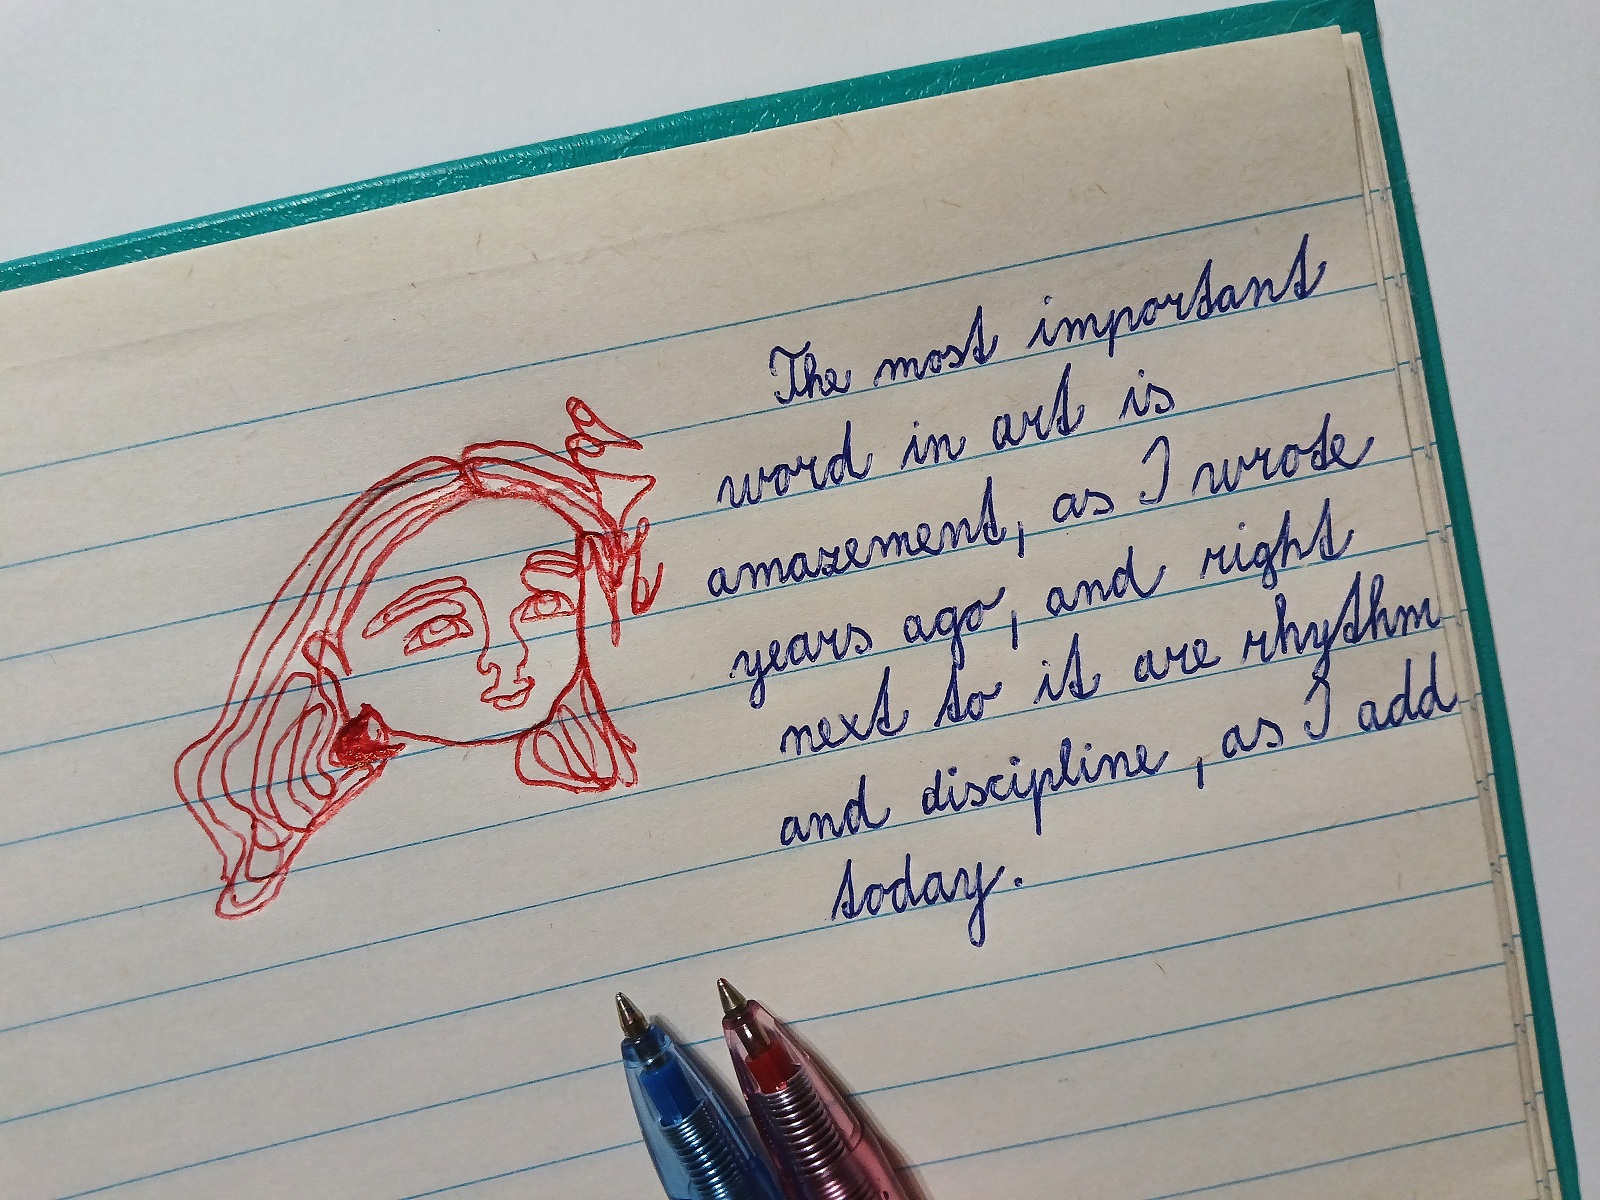 The most important
word in art is
amazement, as I wrote
years ago, and right
next to it are rhythm
and discipline, as I add
today.